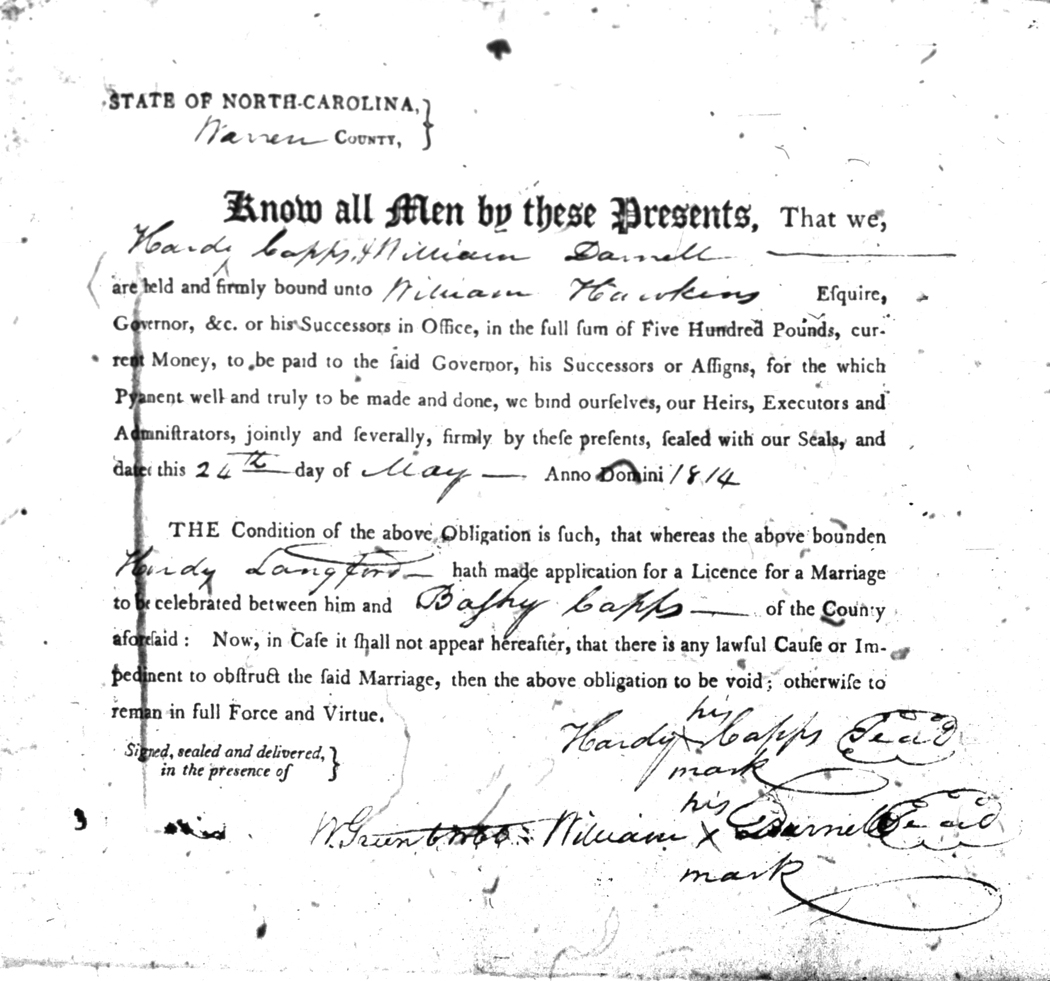 STATE OF NORTH-CAROLINA,
Warren COUNTY,
Know all Men by these Presents, That we,
Hardy Capps & William Darnell
are held and firmly bound unto William Hawkins Eſquire,
Governor, &c. or his Successors in Office, in the full ſum of Five Hundred Pounds, cur-
rent Money, to be paid to the ſaid Governor, his Successors or Aſſigns, for the which
Pyanent well and truly to be made and done, we bind ourſelves, our Heirs, Executors and
Admniſtrators, jointly and ſeverally, firmly by theſe preſents, ſealed with our Seals, and
date this 24th day of May Anno Domini 1814
THE Condition of the above Obligation is ſuch, that whereas the above bounden
Hardy Langford hath made application for a Licence for a Marriage
to be celebrated between him and Baſhy Capps of the County
aforeſaid: Now, in Caſe it ſhall not appear hereafter, that there is any lawful Cauſe or Im-
pedinent to obſtruct the ſaid Marriage, then the above obligation to be void; otherwiſe to
reman in full Force and Virtue.
his
Hardy x Capps Seal
mark
Signed, sealed and delivered,
in the presence of
his
W. Green William x Darnell Seal
mark